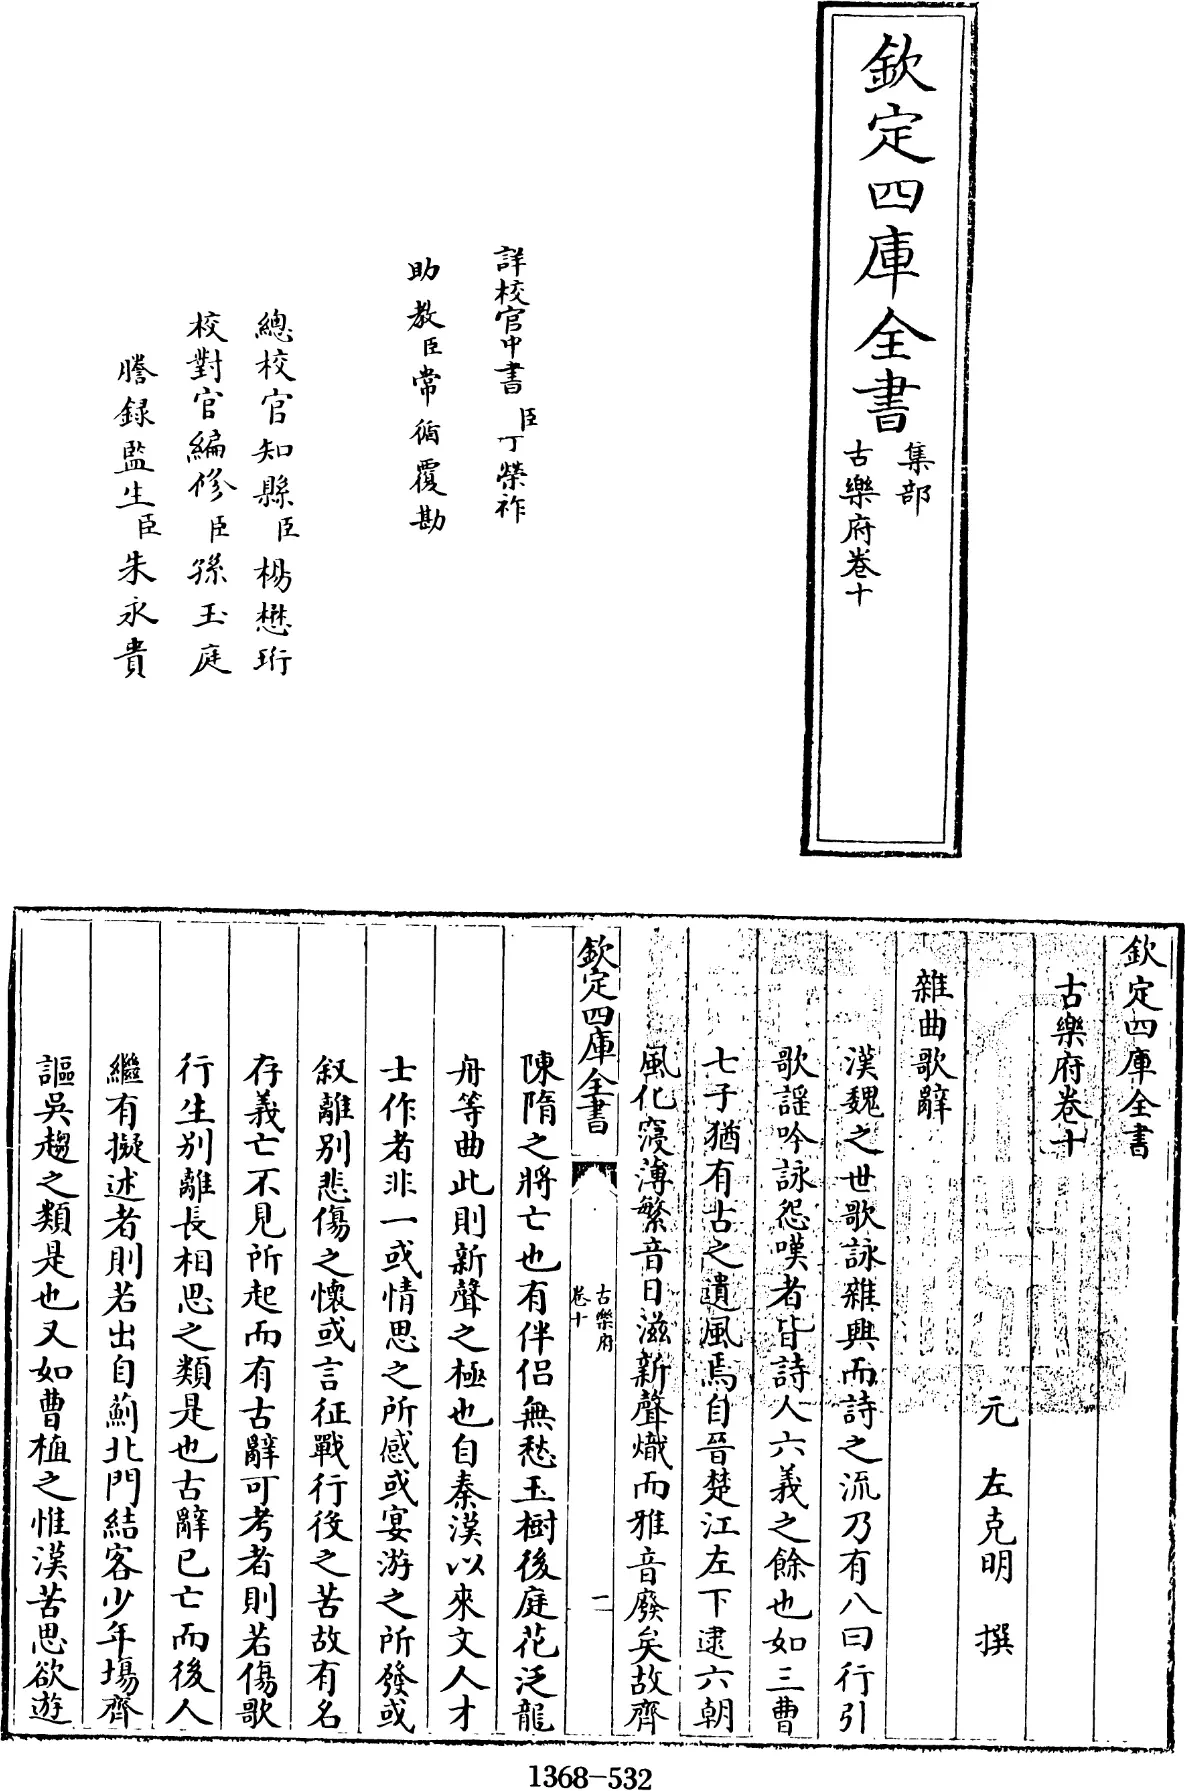 欽定四庫全書
集部
古樂府卷十
詳校官中書臣丁榮祚
助教臣常循覆勘
總校官知縣臣楊懋珩
校對官編修臣孫玉庭
謄録監生臣朱永貴
欽定四庫全書
古樂府卷十
元 左克明 撰
雜曲歌辭
漢魏之世歌詠雜興而詩之流乃有八曰行引
歌謡吟詠怨嘆者皆詩人六義之餘也如三曹
七子猶有古之遺風焉自晉楚江左下逮六朝
風化寖薄繁音日滋新聲熾而雅音廢矣故齊
欽定四庫全書
古樂府
卷十
一
陳隋之將亡也有伴侣無愁玉樹後庭花泛龍
舟等曲此則新聲之極也自秦漢以來文人才
士作者非一或情思之所感或宴游之所發或
叙離别悲傷之懷或言征戰行役之苦故有名
存義亡不見所起而有古辭可考者則若傷歌
行生别離長相思之類是也古辭已亡而後人
繼有擬述者則若出自薊北門結客少年場齊
謳吳趨之類是也又如曹植之惟漢苦思欲遊
1368-532